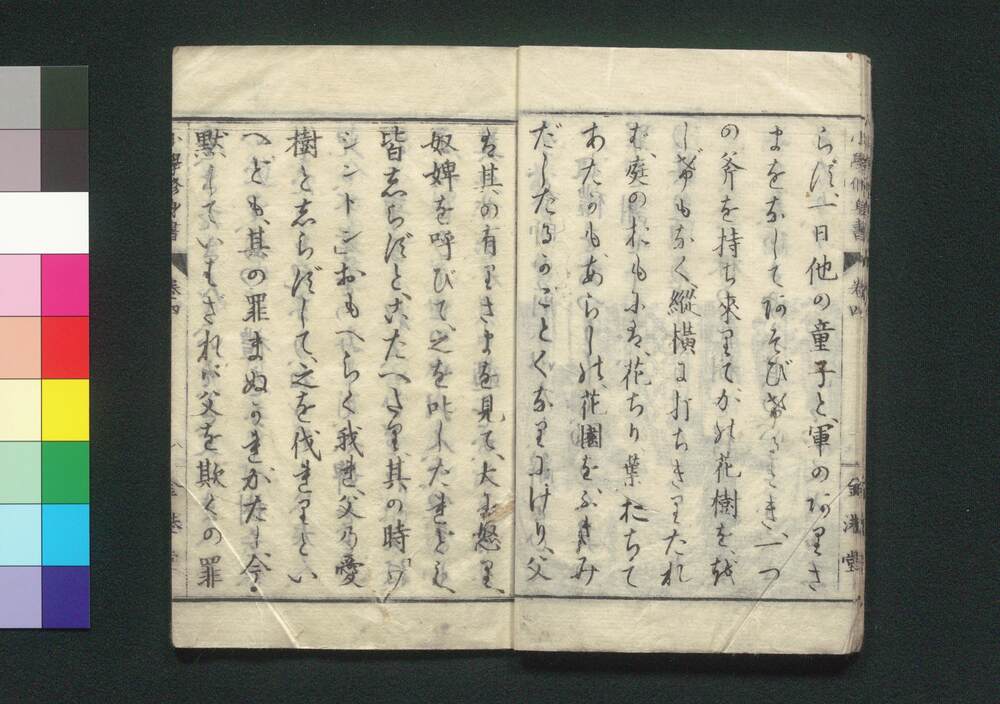 小學修身書 卷四 金港堂
らず、一日他の童子と、軍のありさ
まをなしてあそび戯るゝとき、一つ
の斧を持ち來りてかの花樹を、を
しげもなく、縱横に打ちきりたれ
ば、庭のおもには、花ちり葉おちて
あたかも、あらしの、花園をふきみ
だしたるがごとくなりにけり、父
は其の有りさまを見て、大に怒り、
奴婢を呼びて、之を叱したれども、
皆しらずと、こたへたり、其の時「ワ
シントン」おもへらく我れ父の愛
樹としらずして、之を伐れりとい
へども、其の罪まぬかれがたし、今
黙していはざれば父を欺くの罪
小學修身書 卷四